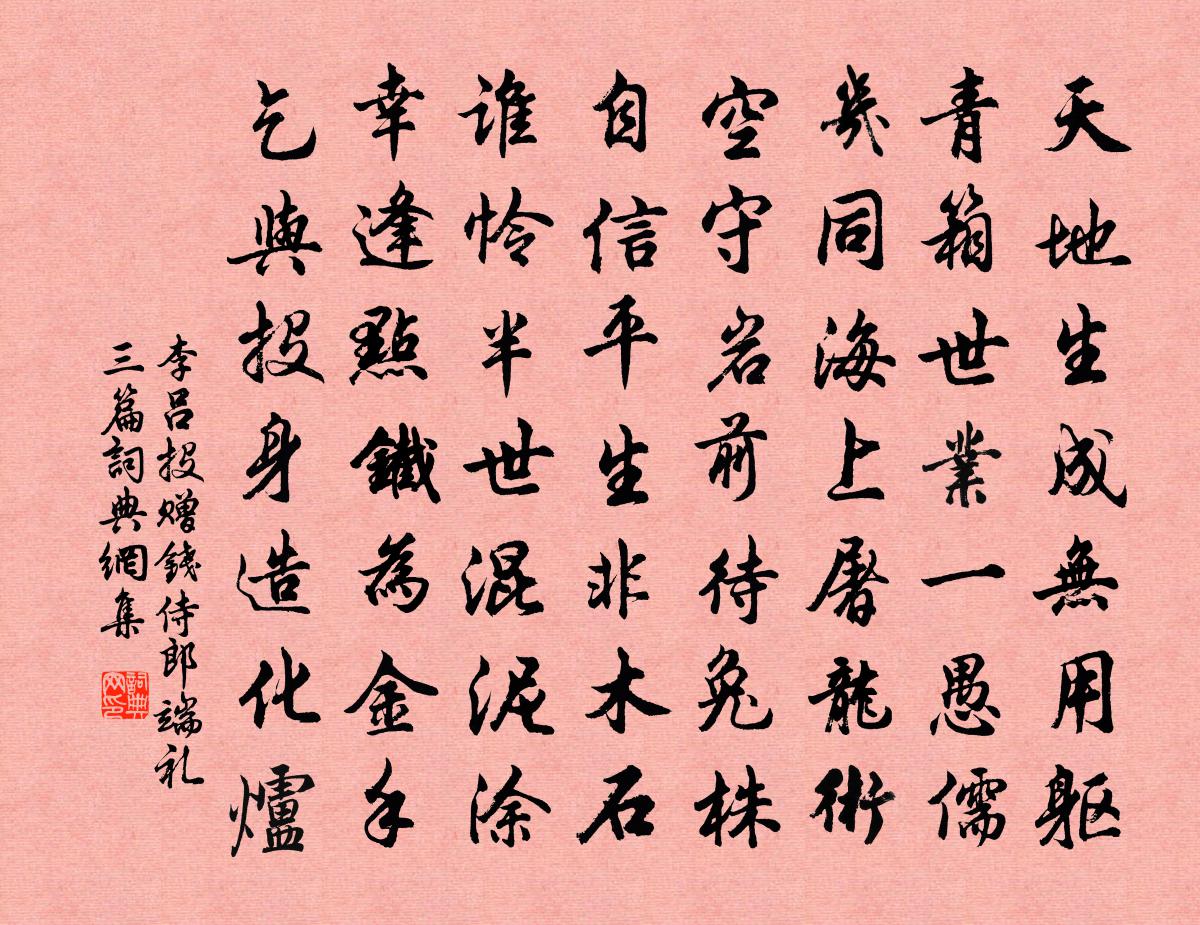 天地生成無用躯
青箱世業一愚儒
幾同海上屠龍術
空守岩前待兔株
自信平生非木石
谁怜半世混泥涂
幸逢點鐵為金手
乞與投身造化爐
李吕投赠錢侍郎端礼
三篇詞典網集
詞典网印